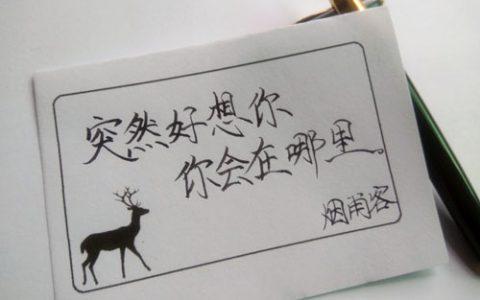 突然好想你
你会在哪里。
烟雨客